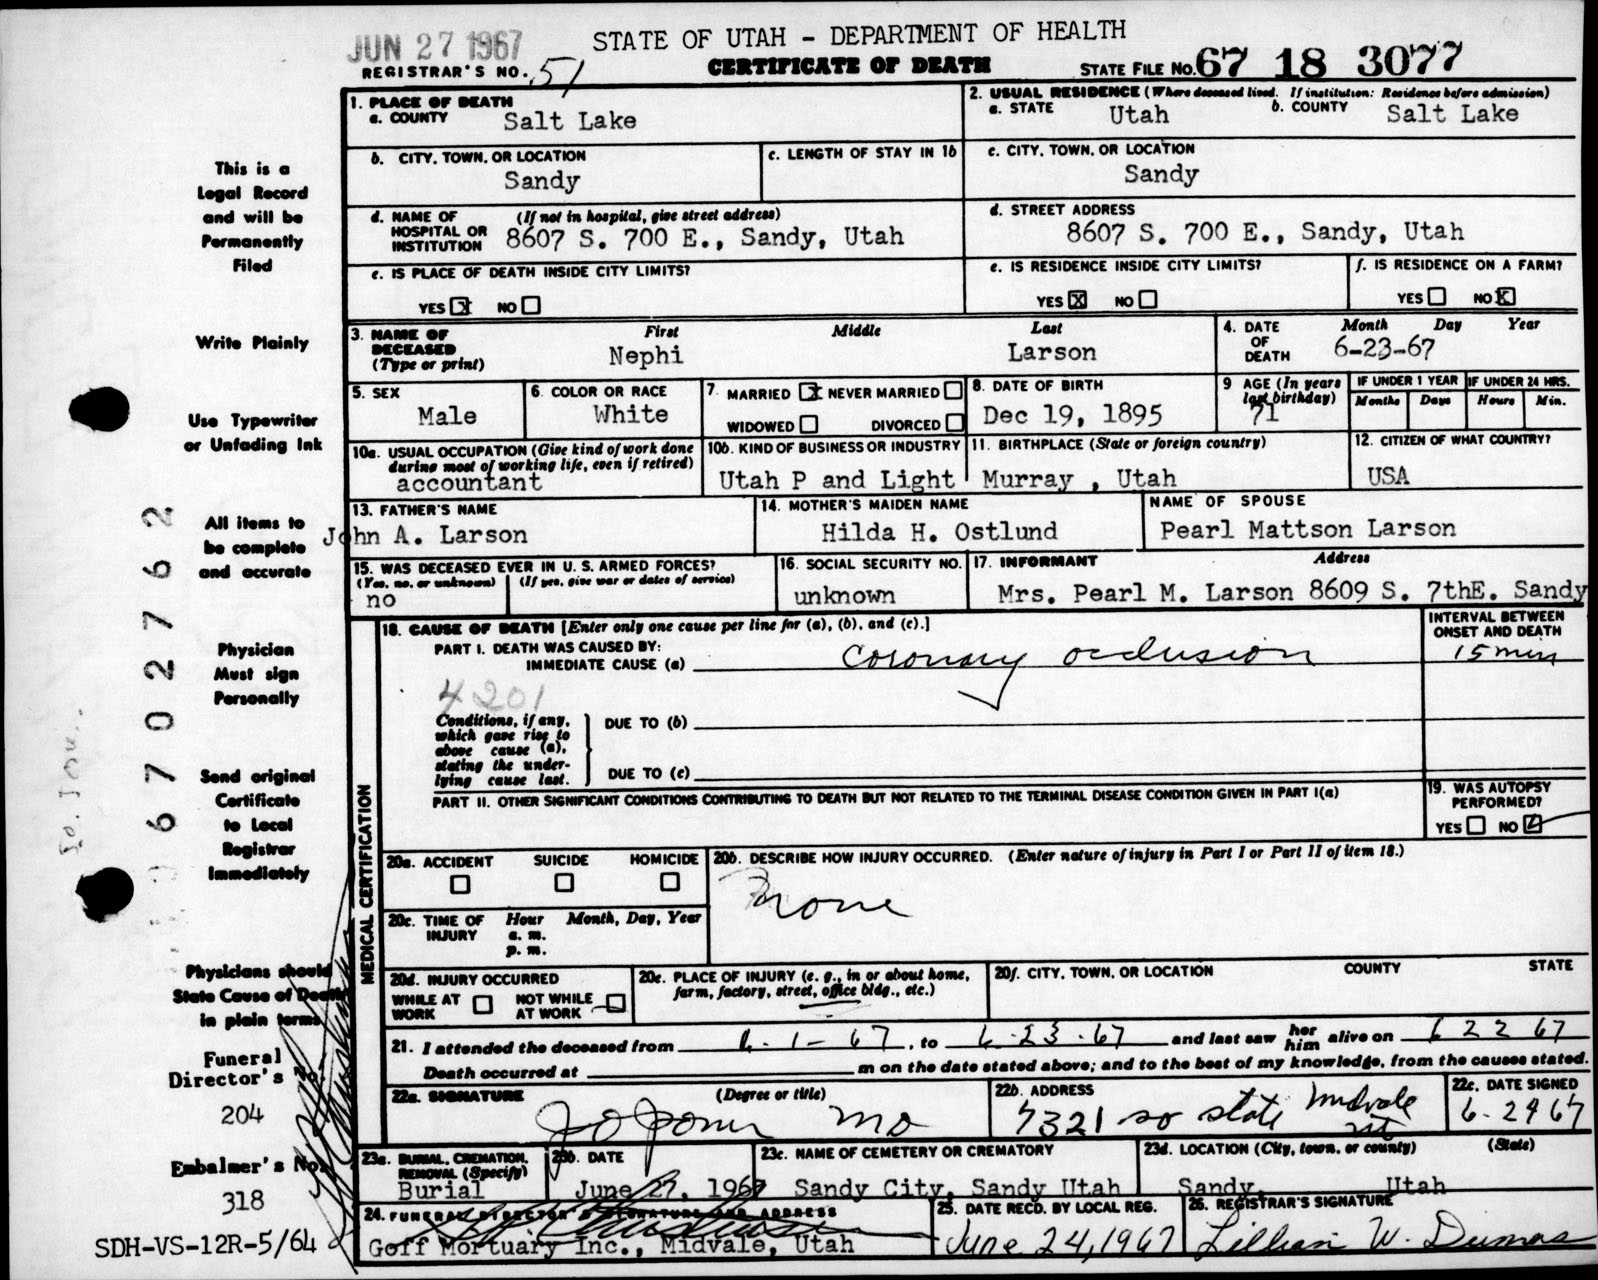 JUN 27 1967
STATE OF UTAH - DEPARTMENT OF HEALTH
CERTIFICATE OF DEATH
REGISTRAR'S NO. 51
STATE FILE NO. 67 18 3077
1. PLACE OF DEATH
a. COUNTY Salt Lake
2. USUAL RESIDENCE (Where deceased lived. If institution: Residence before admission)
a. STATE Utah b. COUNTY Salt Lake
b. CITY, TOWN, OR LOCATION
Sandy
c. LENGTH OF STAY IN 1b
c. CITY, TOWN, OR LOCATION
Sandy
d. NAME OF HOSPITAL OR INSTITUTION (If not in hospital, give street address)
8607 S. 700 E., Sandy, Utah
d. STREET ADDRESS
8607 S. 700 E., Sandy, Utah
e. IS PLACE OF DEATH INSIDE CITY LIMITS?
YES X NO
e. IS RESIDENCE INSIDE CITY LIMITS?
YES X NO
f. IS RESIDENCE ON A FARM?
YES NO X
3. NAME OF DECEASED (Type or print)
First Middle Last
Nephi Larson
4. DATE OF DEATH Month Day Year
6-23-67
5. SEX
Male
6. COLOR OR RACE
White
7. MARRIED X NEVER MARRIED
WIDOWED DIVORCED
8. DATE OF BIRTH
Dec 19, 1895
9 AGE (In years last birthday)
71
IF UNDER 1 YEAR IF UNDER 24 HRS.
Months Days Hours Min.
10a. USUAL OCCUPATION (Give kind of work done during most of working life, even if retired)
accountant
10b. KIND OF BUSINESS OR INDUSTRY
Utah P and Light
11. BIRTHPLACE (State or foreign country)
Murray , Utah
12. CITIZEN OF WHAT COUNTRY?
USA
13. FATHER'S NAME
John A. Larson
14. MOTHER'S MAIDEN NAME
Hilda H. Ostlund
NAME OF SPOUSE
Pearl Mattson Larson
15. WAS DECEASED EVER IN U. S. ARMED FORCES?
(Yes, no, or unknown) (If yes, give war or dates of service)
no
16. SOCIAL SECURITY NO.
unknown
17. INFORMANT Address
Mrs. Pearl M. Larson 8609 S. 7thE. Sandy
18. CAUSE OF DEATH [Enter only one cause per line for (a), (b), and (c).]
INTERVAL BETWEEN ONSET AND DEATH
PART I. DEATH WAS CAUSED BY:
IMMEDIATE CAUSE (a) coronary occlusion
15 min
4201
Conditions, if any, which gave rise to above cause (a), stating the underlying cause last.
DUE TO (b)
DUE TO (c)
PART II. OTHER SIGNIFICANT CONDITIONS CONTRIBUTING TO DEATH BUT NOT RELATED TO THE TERMINAL DISEASE CONDITION GIVEN IN PART I(a)
19. WAS AUTOPSY PERFORMED?
YES NO
MEDICAL CERTIFICATION
20a. ACCIDENT SUICIDE HOMICIDE
20b. DESCRIBE HOW INJURY OCCURRED. (Enter nature of injury in Part I or Part II of item 18.)
none
20c. TIME OF INJURY Hour Month, Day, Year
a. m.
p. m.
20d. INJURY OCCURRED
WHILE AT WORK NOT WHILE AT WORK
20e. PLACE OF INJURY (e. g., in or about home, farm, factory, street, office bldg., etc.)
20f. CITY, TOWN, OR LOCATION COUNTY STATE
21. I attended the deceased from 6-1-67, to 6-23-67 and last saw her him alive on 6 22 67
Death occurred at m on the date stated above; and to the best of my knowledge, from the causes stated.
22a. SIGNATURE (Degree or title)
MD
22b. ADDRESS
7321 so state Midvale Ut
22c. DATE SIGNED
6-2467
23a. BURIAL, CREMATION, REMOVAL (Specify)
Burial
23b. DATE
June 27, 1967
23c. NAME OF CEMETERY OR CREMATORY
Sandy City, Sandy Utah
23d. LOCATION (City, town, or county) (State)
Sandy, Utah
24. FUNERAL DIRECTOR'S SIGNATURE AND ADDRESS
Goff Mortuary Inc., Midvale, Utah
25. DATE RECD. BY LOCAL REG.
June 24, 1967
26. REGISTRAR'S SIGNATURE
Lillian W. Dumas
This is a
Legal Record
and will be
Permanently
Filed
Write Plainly
Use Typewriter
or Unfading Ink
All items to
be complete
and accurate
Physician
Must sign
Personally
Send original
Certificate
to Local
Registrar
Immediately
Physicians should
State Cause of Death
in plain terms
Funeral
Director's No.
204
Embalmer's No.
318
SDH-VS-12R-5/64
67 02762